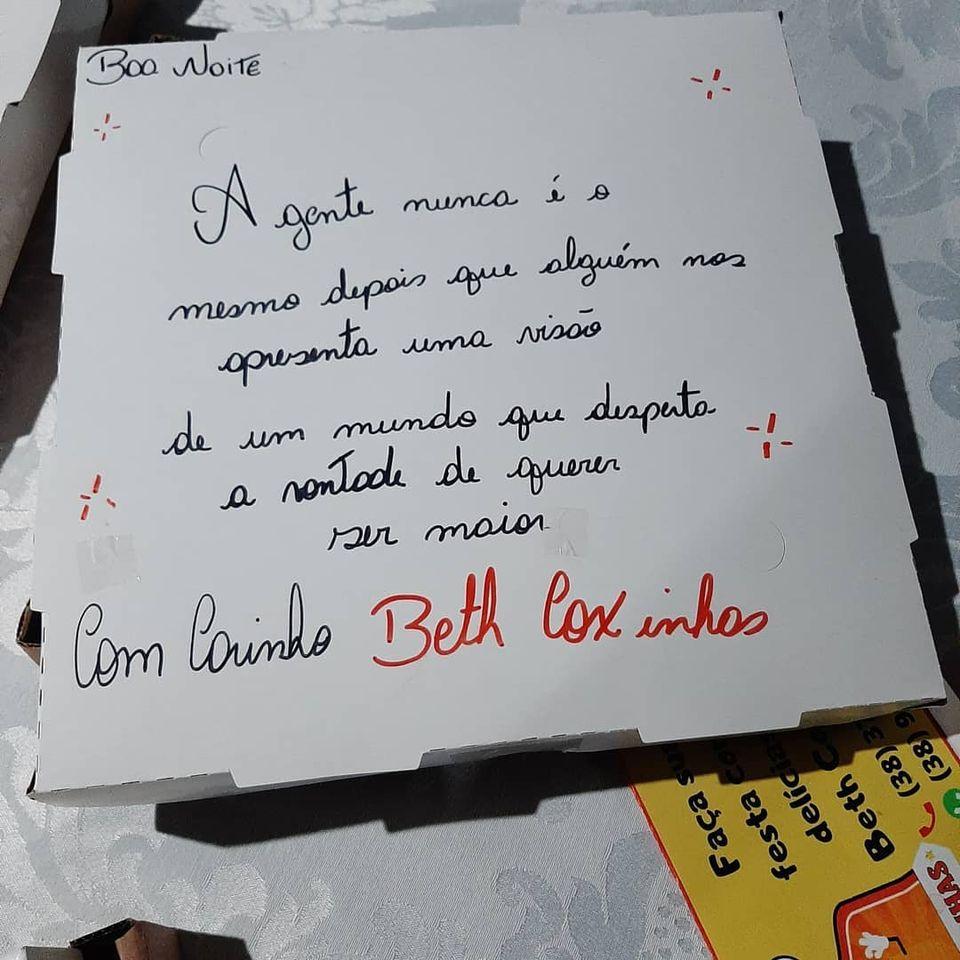 Boa Noite
A gente nunca é o
mesmo depois que alguém nos
apresenta uma visão
de um mundo que desperta
a vontade de querer
ser maior
Com Carinho Beth Coxinhas
Faça su
festa co
delícia
Beth Co
(38) 3
(38) 9
HAS